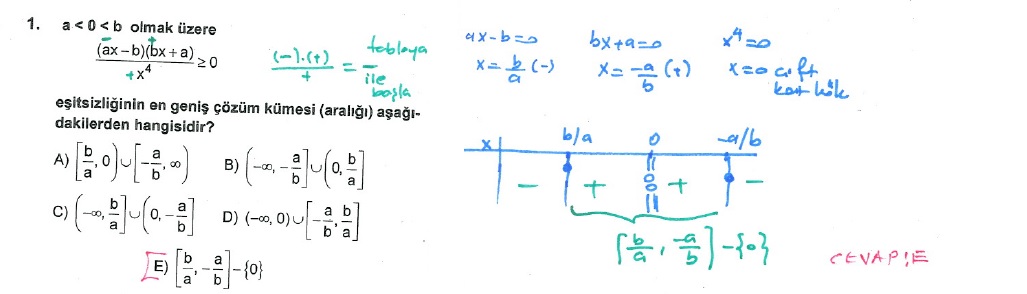 1. a < 0 < b olmak üzere
(ax − b)(bx + a) / x⁴ ≥ 0
eşitsizliğinin en geniş çözüm kümesi (aralığı) aşağı-
dakilerden hangisidir?
A) [b/a, 0) ∪ [−a/b, ∞)
B) (−∞, −a/b] ∪ (0, b/a]
C) (−∞, b/a] ∪ (0, −a/b]
D) (−∞, 0) ∪ [−a/b, b/a]
E) [b/a, −a/b] − {0}
− + +
(−).(+) / + = − tabloya
ile
başla
ax−b=0
x = b/a (−)
bx+a=0
x = −a/b (+)
x⁴=0
x=0 çift
kat kök
x b/a 0 −a/b
− + + −
[b/a, −a/b] − {0}
CEVAP:E